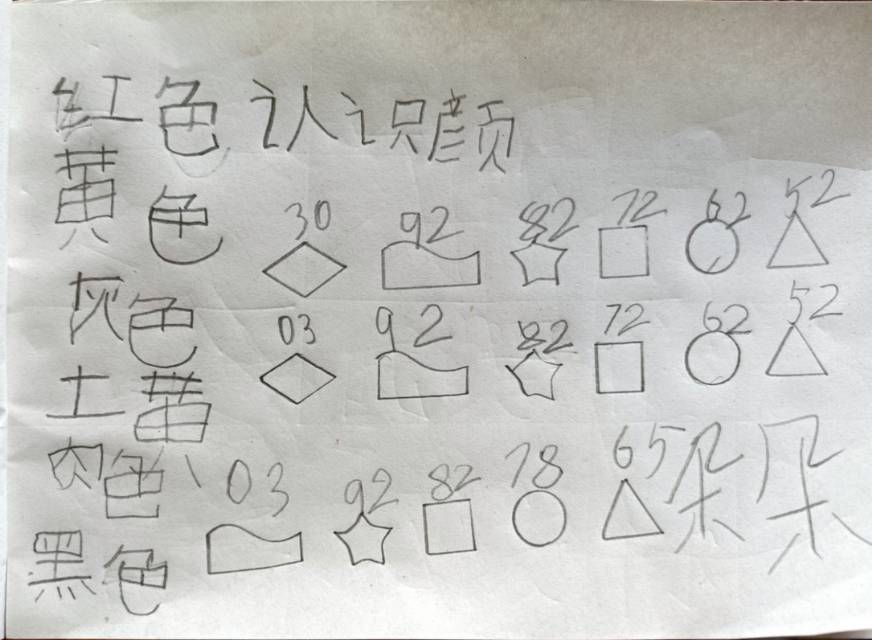 红色 认识颜
黄色
30 92 82 72 62 52
灰色
03 92 82 72 62 52
土黄
肉色、 03 92 82 78 65 朵朵
黑色